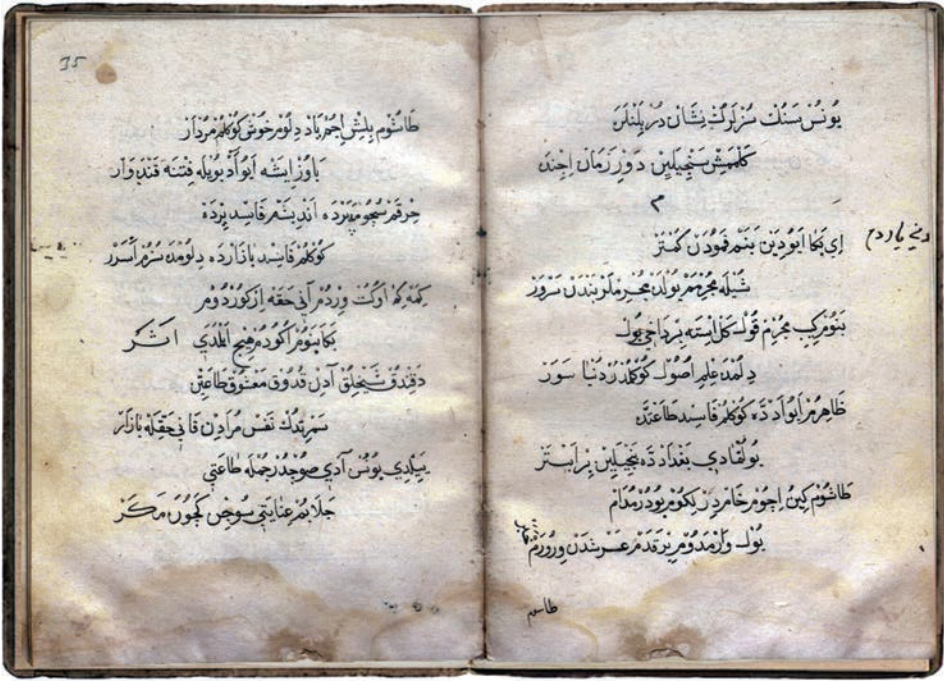 يونس سنك سزلرك نشان درر بلنلره
كلممش سنجيلين دور زمان اجنده
م
اي بكا ايو دين بنم قمودن كمتر
شيله مجرمم يولده مجرملر بندن سرور
بنوم كبي مجرم قول كل استه بر داخي بول
دلمده علم اصول كوكلمدر دنيا سور
ظاهرم ايو آدده كوكلم فاسد طاعتده
بولنمادي بغدادده بنجيلين بر ابتر
طاشوم كين اجوم خام درلكوم بودر مدام
يول وارمدوم بر قدم عرشدن ويررم
طاشوم
35
طاشوم بلش اجم ياد دلوم خوش كوكلم مردار
ياوز ايشه ايو آد بويله فتنه قنده وار
خرقم سجوم پرده انديشم فاسد يرده
كوكلم فاسد بازارده دلومده سزم اسرر
كمه كه اوكت ويردم آني حقه ايركوردوم
بكا بنوم اوكودم هيچ ايلمدي اثر
دقندق شيخلق آدن قدوق معشوق طاعتن
نفس مرادن قاني حقله بازار
بيلدي يونس آدي صوچدر جمله طاعتي
جلابم عنايتي سوچن كچورر مكر